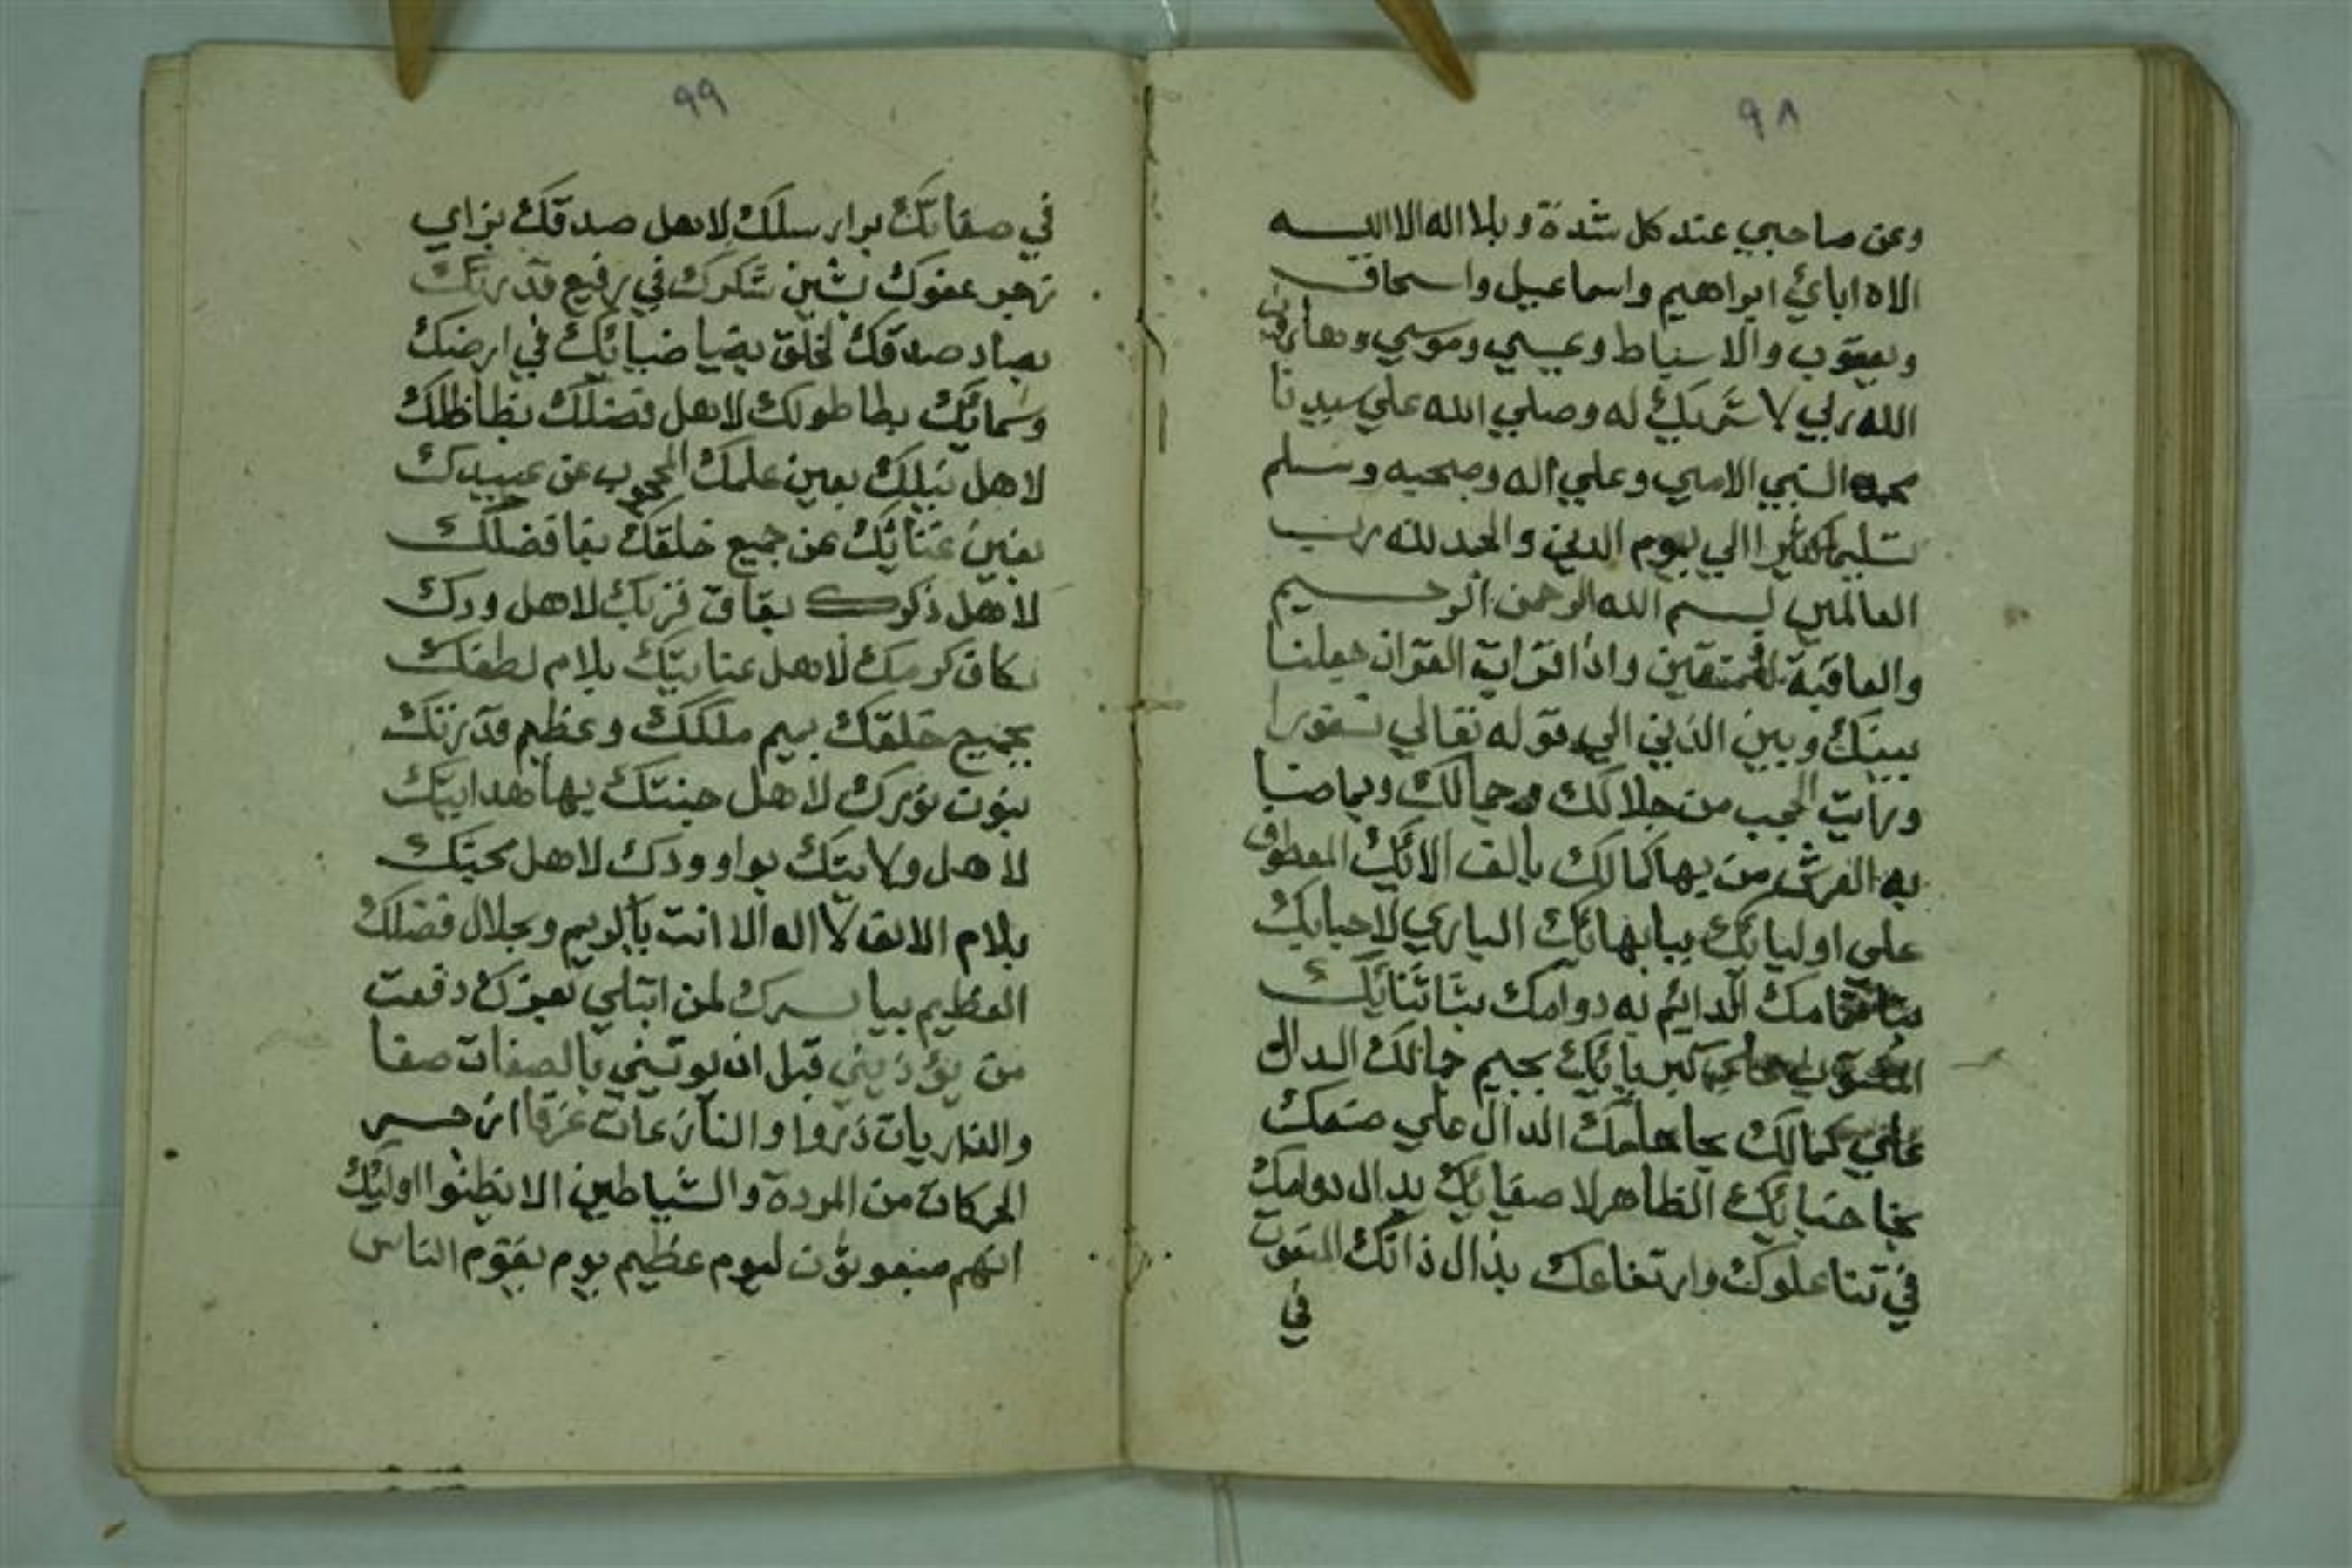 ٩٨
وعن صاحبي عند كل شدة وبلا اله الا اليه
الاه اباي ابراهيم واسماعيل واسحاق
ويعقوب والاسباط وعيسي وموسي وهارون
الله ربي لا شريك له وصلي الله علي سيدنا
محمد النبي الامي وعلي اله وصحبه وسلم
تسليما كثيرا الي يوم الدين والحمد لله رب
العالمين بسم الله الرحمن الرحيم
والعاقبة للمتقين واذا قرات القران جعلنا
بينك وبين الذين الي قوله تعالي
ورات الحجب من جلالك وجمالك وبما
به العرش من بها كمالك بالف الائك المعطوف
علي اوليائك ببا بهائك الباري لاحبابك
الدائم به دوامك بثا ثنائك
كبريائك بجيم جمالك الدال
علي كمالك بحا حلمك الدال علي
بخا الظاهر لا صفيائك بدال دوامك
في علوك وارتفاعك بذال ذاتك
في
٩٩
في صفاتك برا رسلك لاهل صدقك بزاي
عفوك بشين شكرك في رفيع قدرتك
بصاد صدقك لخلق بضيا ضيائك في ارضك
وسمائك بطا طولك لاهل فضلك بظا ظلك
لاهل بعين علمك المحجوب عن عبيدك
بغين عن جميع خلقك بفا فضلك
لاهل ذكرك بقاف قربك لاهل ودك
بكاف كرمك لاهل عنايتك بلام لطفك
بجميع خلقك بميم ملكك وعظيم قدرتك
بنون نورك لاهل جنتك بها هدايتك
لاهل ولايتك بواو ودك لاهل محبتك
بلام الالف لا اله الا انت وبجلال فضلك
العظيم بيا لمن دفعت
من يؤذيني قبل ان بالصفات صفا
والذاريات ذروا والنازعات غرقا
من المردة والشياطين الا يظنوا اوليك
انهم مبعوثون ليوم عظيم يوم يقوم الناس